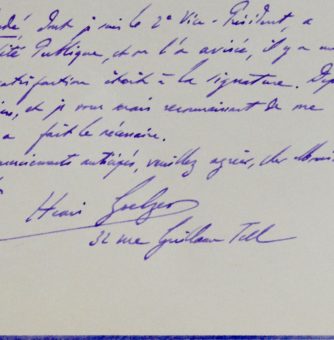 dont je suis le 2e Vice-Président, a
ité Publique, et on l'a avisée, il y a
satisfaction était à la signature. Dep
et je vous serais reconnaissant de me
a fait le nécessaire.
merciements anticipés, veuillez agréer, cher Monsi
Henri
32 rue Guillaume Tell